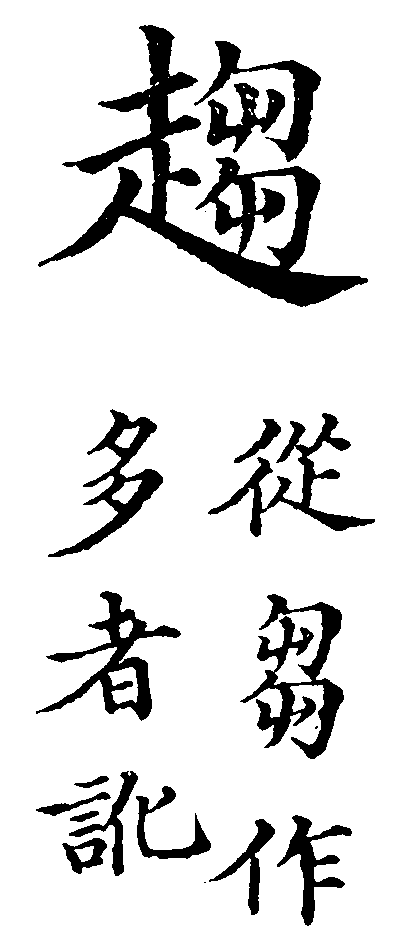 趨
從芻作
多者訛